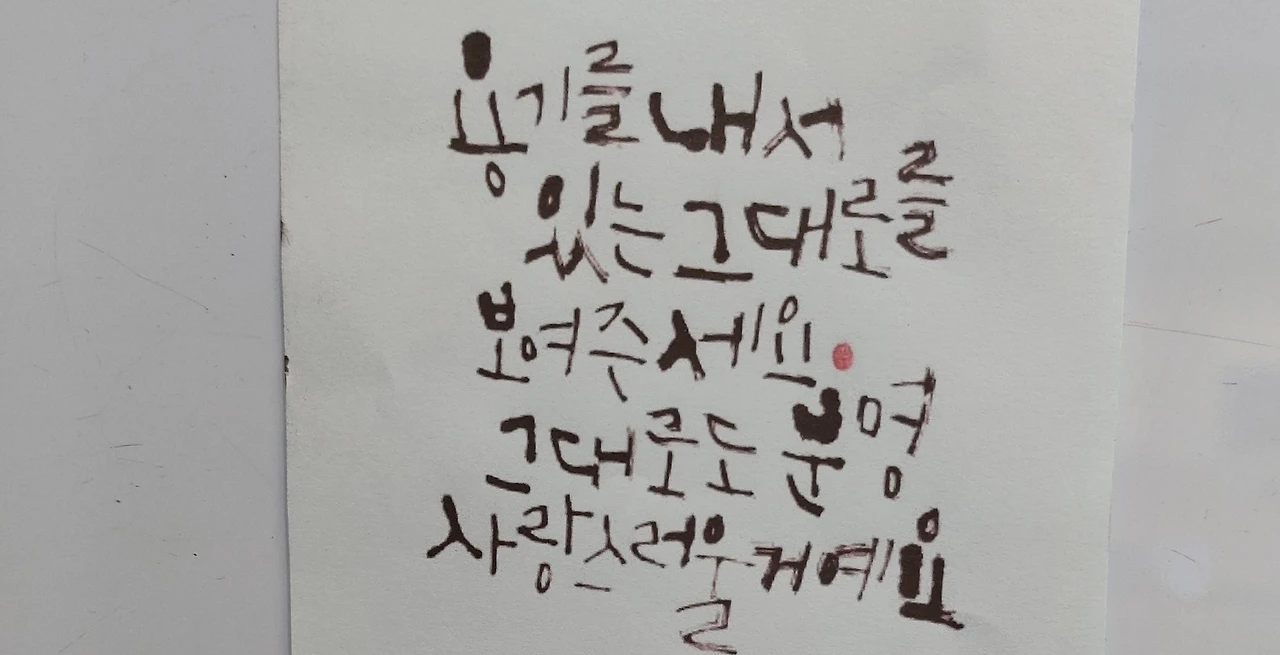 용기를 내서
있는 그대로를
보여주세요.
그대로도 분명
사랑스러울거예요